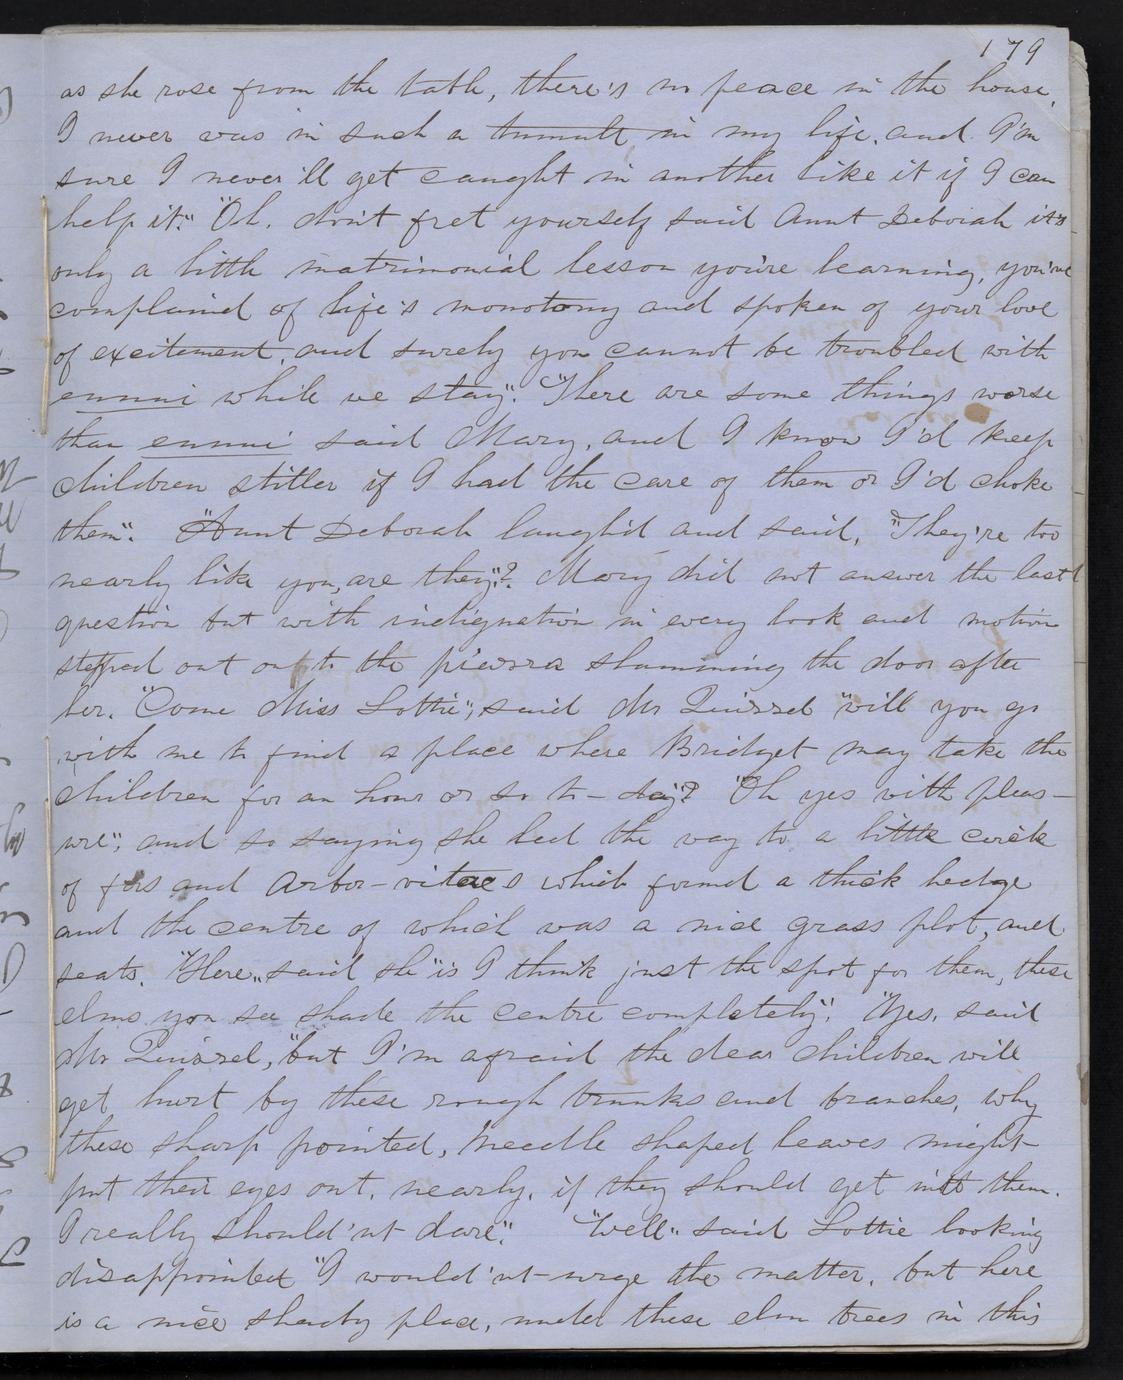 179
as she rose from the table, there's no peace in the house,
I never was in such a tumult in my life, and I'm
sure I never'll get caught in another like it if I can
help it." "Oh, don't fret yourself said Aunt Deborah it's
only a little matrimonial lesson you're learning, you've
complained of life's monotony and spoken of your love
of excitement, and surely you cannot be troubled with
ennui while we stay." "There are some things worse
than ennui said Mary, and I know I'd keep
children stiller if I had the care of them or I'd choke
them". "Aunt Deborah laugh'd and said, "They're too
nearly like you, are they"? Mary did not answer the last
question but with indignation in every look and motion
stepped out on to the piazza slamming the door after
her. "Come Miss Lottie", said Mr Quirrel "will you go
with me to find a place where Bridget may take the
children for an hour or so to-day"? "Oh yes with pleas-
ure", and so saying she led the way to a little circle
of firs and Arbor-vitaes which formed a thick hedge
and the centre of which was a nice grass plot, and
seats. "Here" said she "is I think just the spot for them, these
elms you see shade the centre completely". "Yes, said
Mr Quirrel, "but I'm afraid the dear children will
get hurt by these rough trunks and branches, why
these sharp pointed, needle shaped leaves might
put their eyes out, nearly, if they should get into them.
I really should'nt dare". "Well" said Lottie looking
disappointed "I would'nt urge the matter, but here
is a nice shady place, under these elm trees in this